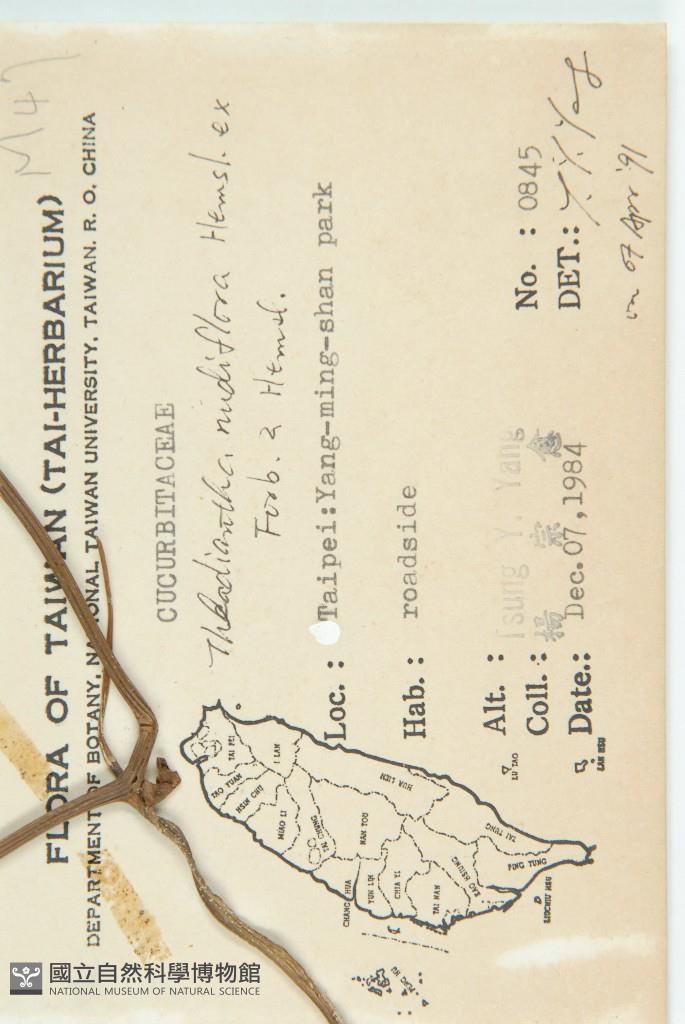 M47
FLORA OF TAIWAN (TAI-HERBARIUM)
DEPARTMENT OF BOTANY, NATIONAL TAIWAN UNIVERSITY, TAIWAN, R. O. CHINA
CUCURBITACEAE
Thladiantha nudiflora Hemsl. ex
Forb. & Hemsl.
Loc.: Taipei:Yang-ming-shan park
Hab.: roadside
Alt.:
No.: 0845
Coll.: Tsung Y. Yang
楊宗
DET.: Yang
Date.: Dec.07,1984
on 07 Apr '91
TAI PEI
I LAN
TAO YUAN
HSIN CHU
MIAO LI
TAI CHUNG
HUA LIEN
NAN TOU
CHANG HUA
YUN LIN
CHIA YI
TAI NAN
KAO HSIUNG
TAI TUNG
PING TUNG
PENG HU
LIUCHIU HSU
LU TAO
LAN HSU
國立自然科學博物館
NATIONAL MUSEUM OF NATURAL SCIENCE